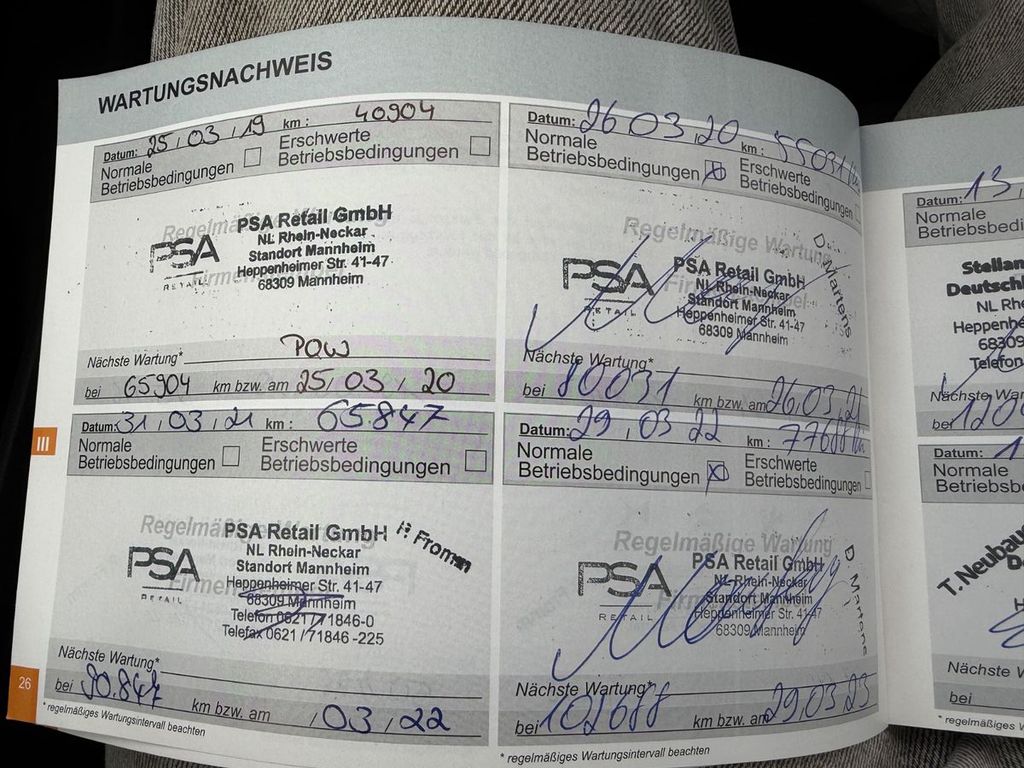 WARTUNGSNACHWEIS
Datum: 25,03,19 km: 40904
Normale
Betriebsbedingungen
Erschwerte
Betriebsbedingungen
Regelmäßige Wartung
Firmen
PSA
RETAIL
PSA Retail GmbH
NL Rhein-Neckar
Standort Mannheim
Heppenheimer Str. 41-47
68309 Mannheim
Nächste Wartung*
bei 65904 km bzw. am 25,03,20
Datum: 26 03,20 km: 55031
Normale
Betriebsbedingungen
Erschwerte
Betriebsbedingungen
Regelmäßige Wartung
PSA
RETAIL
PSA Retail GmbH
NL Rhein-Neckar
Standort Mannheim
Heppenheimer Str. 41-47
68309 Mannheim
D. Martens
Nächste Wartung*
bei 80031 km bzw. am 26,03,21
Datum: 31,03,21 km: 65.847
Normale
Betriebsbedingungen
Erschwerte
Betriebsbedingungen
Regelmäßige Wartung
Firmen
PSA
RETAIL
PSA Retail GmbH
NL Rhein-Neckar
Standort Mannheim
Heppenheimer Str. 41-47
68309 Mannheim
Telefon 0621 / 71846-0
Telefax 0621 / 71846 -225
P. Fromm
Nächste Wartung*
bei 90.847 km bzw. am ,03,22
* regelmäßiges Wartungsintervall beachten
Datum: 29,03 22 km: 77688
Normale
Betriebsbedingungen
Erschwerte
Betriebsbedingungen
Regelmäßige Wartung
PSA
RETAIL
PSA Retail GmbH
NL Rhein-Neckar
Standort Mannheim
Heppenheimer Str. 41-47
68309 Mannheim
D. Martens
Nächste Wartung*
bei 102688 km bzw. am 29,03,23
* regelmäßiges Wartungsintervall beachten
III
26
Datum: 13,
Normale
Betriebsbedi
Stellan
Deutschl
NL Rh
Heppenhe
68309
Telefon
Nächste War
bei 120
Datum: 1
Normale
Betriebsb
T. Neubau
Nächste
bei
* regelmäßig